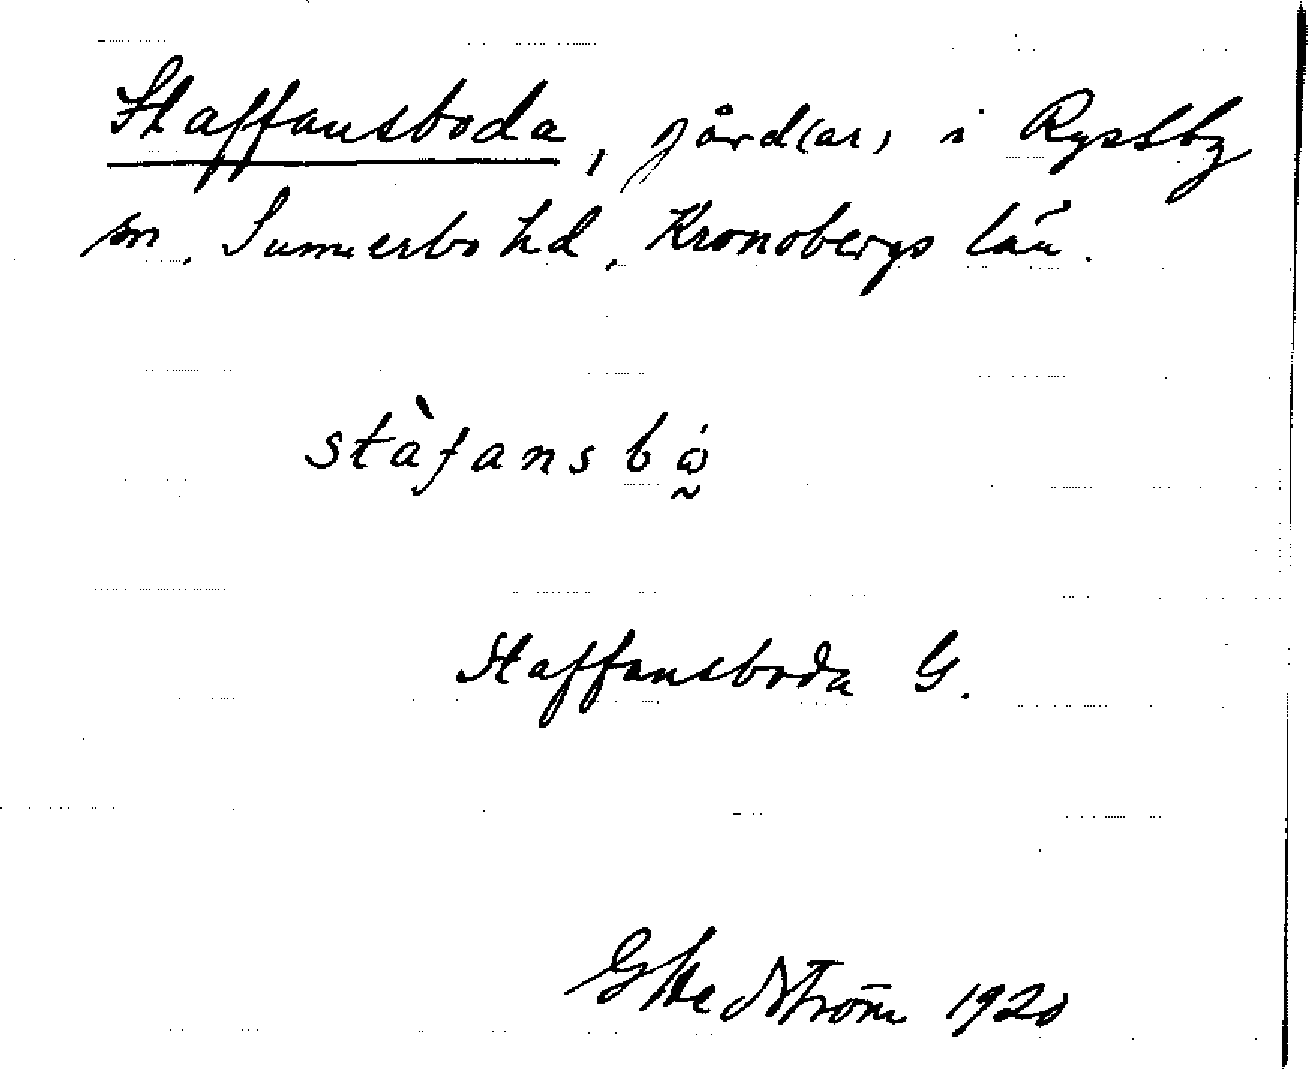 Staffansboda, gård(ar) i Ryssby
sn, Sunnerbo hd, Kronobergs län.
stàfansbó̰
Staffansboda G.
G Hedström 1920